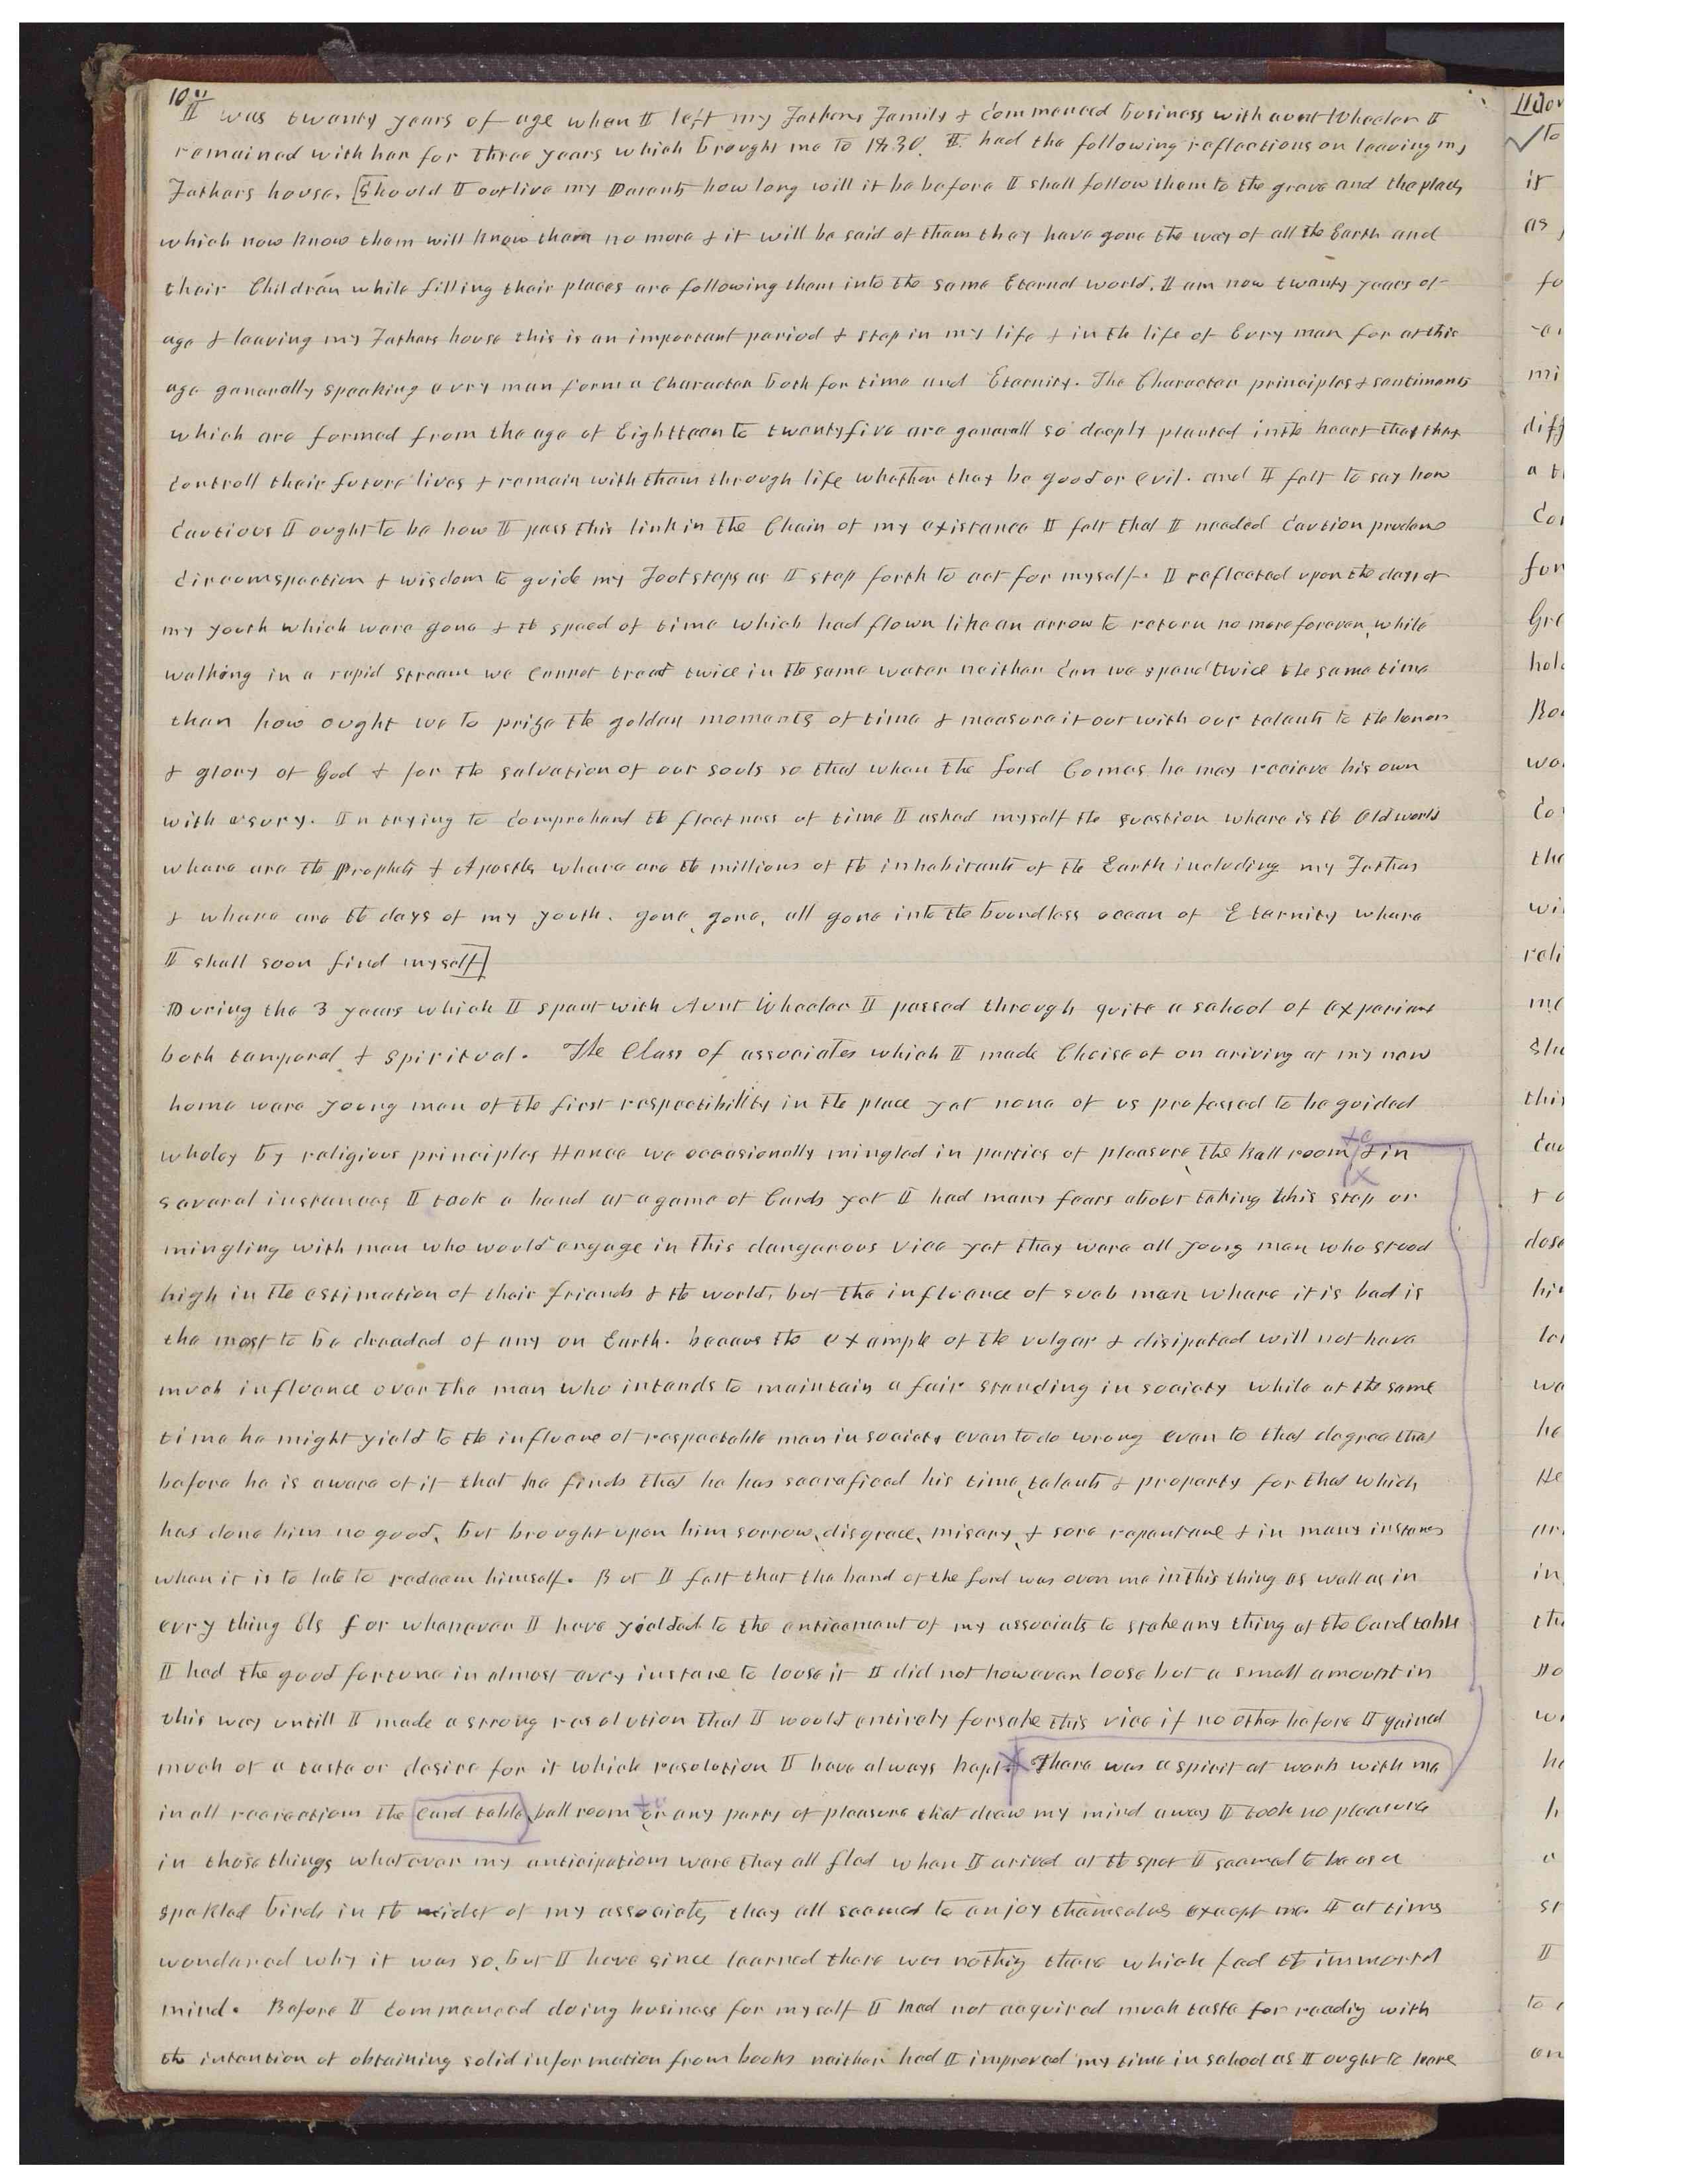 10
I was twenty years of age when I left my Fathers Family & Commenced business with aunt Wheeler I
remained with her for three years which brought me to 1830. I had the following reflections on leaving my
Fathers house. [Should I outlive my Parents how long will it be before I shall follow them to the grave and the places
which now know them will know them no more & it will be said of them they have gone the way of all the Earth and
their Children while filling their places are following them into the same Eternal world. I am now twenty years of
age & leaving my Fathers house this is an important period & step in my life & in th life of Evry man for at this
age generally speaking evry man form a Character both for time and Eternity. The Character principles & sentiments
which are formed from the age of Eightteen to twentyfive are generall so deeply planted in the heart that they
Controll their future lives & remain with them through life whether they be good or evil. and I felt to say how
Cautious I ought to be how I pass this link in the Chain of my existance I felt that I needed Caution prudence
Circumspection & wisdom to guide my Footsteps as I step forth to act for myself. I reflected upon the days of
my youth which were gone & the speed of time which had flown like an arrow to return no more forever, while
walking in a rapid stream we Cannot tread twice in the same water neither Can we spend twice the same time
then how ought we to prize the golden moments of time & measure it out with our talents to the honor
& glory of God & for the salvation of our souls so that when the Lord Comes he may recieve his own
with usury. In trying to Comprehend the fleetness of time I asked myself the question where is the Old world
where are the Prophets & Apostles where are the millions of the inhabitants of the Earth including my Fathers
& where are the days of my youth. gone, gone, all gone into the boundless ocean of Eternity where
I shall soon find myself]
During the 3 years which I spent with Aunt Wheeler I passed through quite a school of experiance
both temporal & spiritual. The Class of associates which I made Choise of on ariving at my new
home were young men of the first respectibility in the place yet none of us professed to be guided
wholey by religious principles Hence we occasionally mingled in parties of pleasure, the Ball room, & in
several instances I took a hand at a game of Cards yet I had many fears about taking this step or
mingling with men who would engage in this dangerous vice yet they were all young men who stood
high in the estimation of their friends & the world, but the influence of such men where it is bad is
the most to be dreaded of any on Earth. becaus the example of the vulgar & disipated will not have
much influence over the man who intends to maintain a fair standing in society while at the same
time he might yield to the influence of respectable men in society even to do wrong even to that degree that
before he is aware of it that he finds that he has sacraficed his time, talents & property for that which
has done him no good, but brought upon him sorrow, disgrace, misery, & sore repentance & in many instances
when it is to late to redeem himself. But I felt that the hand of the Lord was over me in this thing as well as in
evry thing Els for whenever I have yielded to the enticement of my associats to stake any thing at the Card table
I had the good fortune in almost evry instance to loose it I did not however loose but a small amount in
this way untill I made a strong resolution that I would entirely forsake this vice if no other before I gained
much of a taste or desire for it which resolution I have always kept. There was a spirit at work with me
in all recreations the Card table, ball room or any party of pleasure that drew my mind away I took no pleasure
in those things whatever my anticipations were they all fled when I arived at the spot I seemed to be as a
spekled birds in the midst of my associates, they all seemed to enjoy themselves except me I at times
wondered why it was so, but I have since learned there was nothig there which fed the immortal
mind. Before I Commenced doing business for myself I had not acquired much taste for readig with
the intention of obtaining solid information from books neither had I improved my time in school as I ought to have